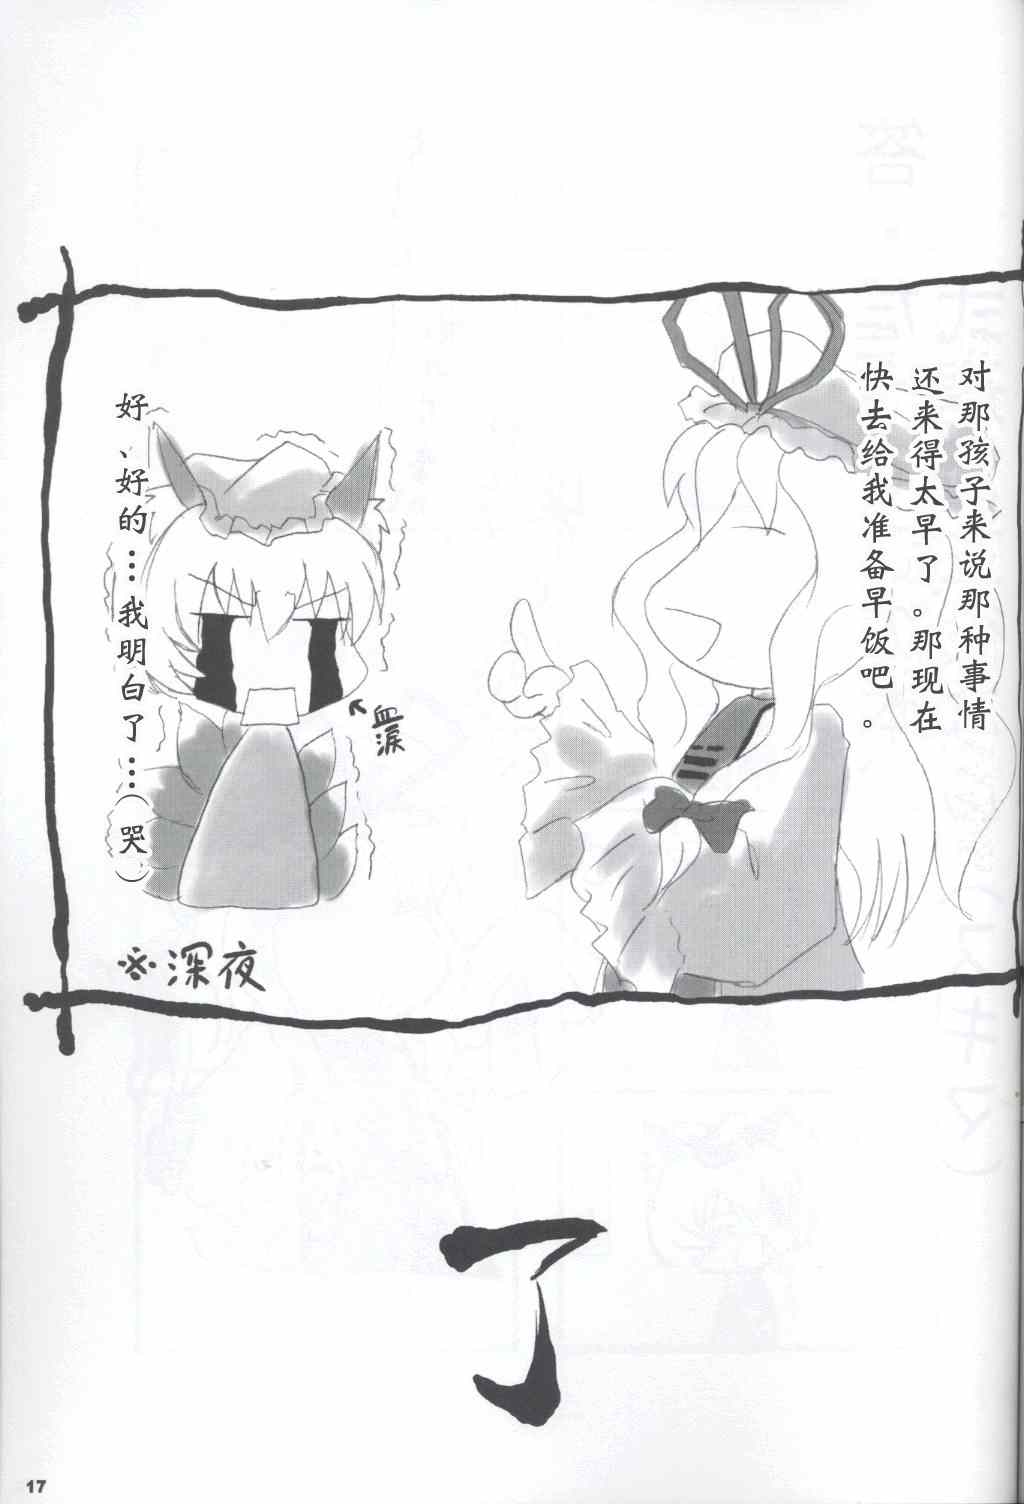 对那孩子来说那种事情
还来得太早了。那现在
快去给我准备早饭吧。
好、好的…我明白了…（哭）
血涙
※深夜
了
17